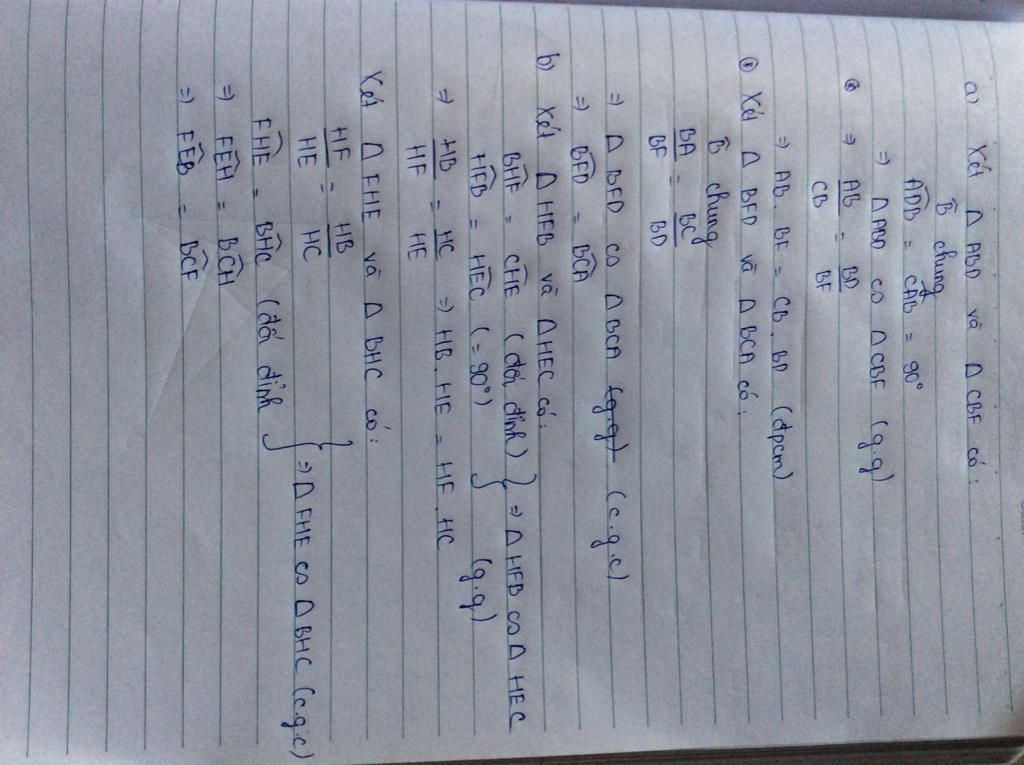 a) Xét Δ ABD và Δ CBF có:
B̂ chung
ADB̂ = CAB̂ = 90°
⇒ Δ ABD ∽ Δ CBF (g.g)
⊛ ⇒ AB/CB = BD/BF
⇒ AB. BF = CB. BD (đpcm)
⊛ Xét Δ BFD và Δ BCA có:
B̂ chung
BA/BF = BC/BD
⇒ Δ BFD ∽ Δ BCA (g.g) (c.g.c)
⇒ BFD̂ = BCÂ
b) Xét Δ HFB và Δ HEC có:
BHF̂ = CHÊ (đối đỉnh) } ⇒ Δ HFB ∽ Δ HEC
HFB̂ = HEĈ (= 90°) (g.g)
⇒ HB/HF = HC/HE ⇒ HB. HE = HF. HC
Xét Δ FHE và Δ BHC có:
HF/HE = HB/HC } ⇒ Δ FHE ∽ Δ BHC (c.g.c)
FHÊ = BHĈ (đối đỉnh)
⇒ FEĤ = BCĤ
⇒ FEB̂ = BCF̂